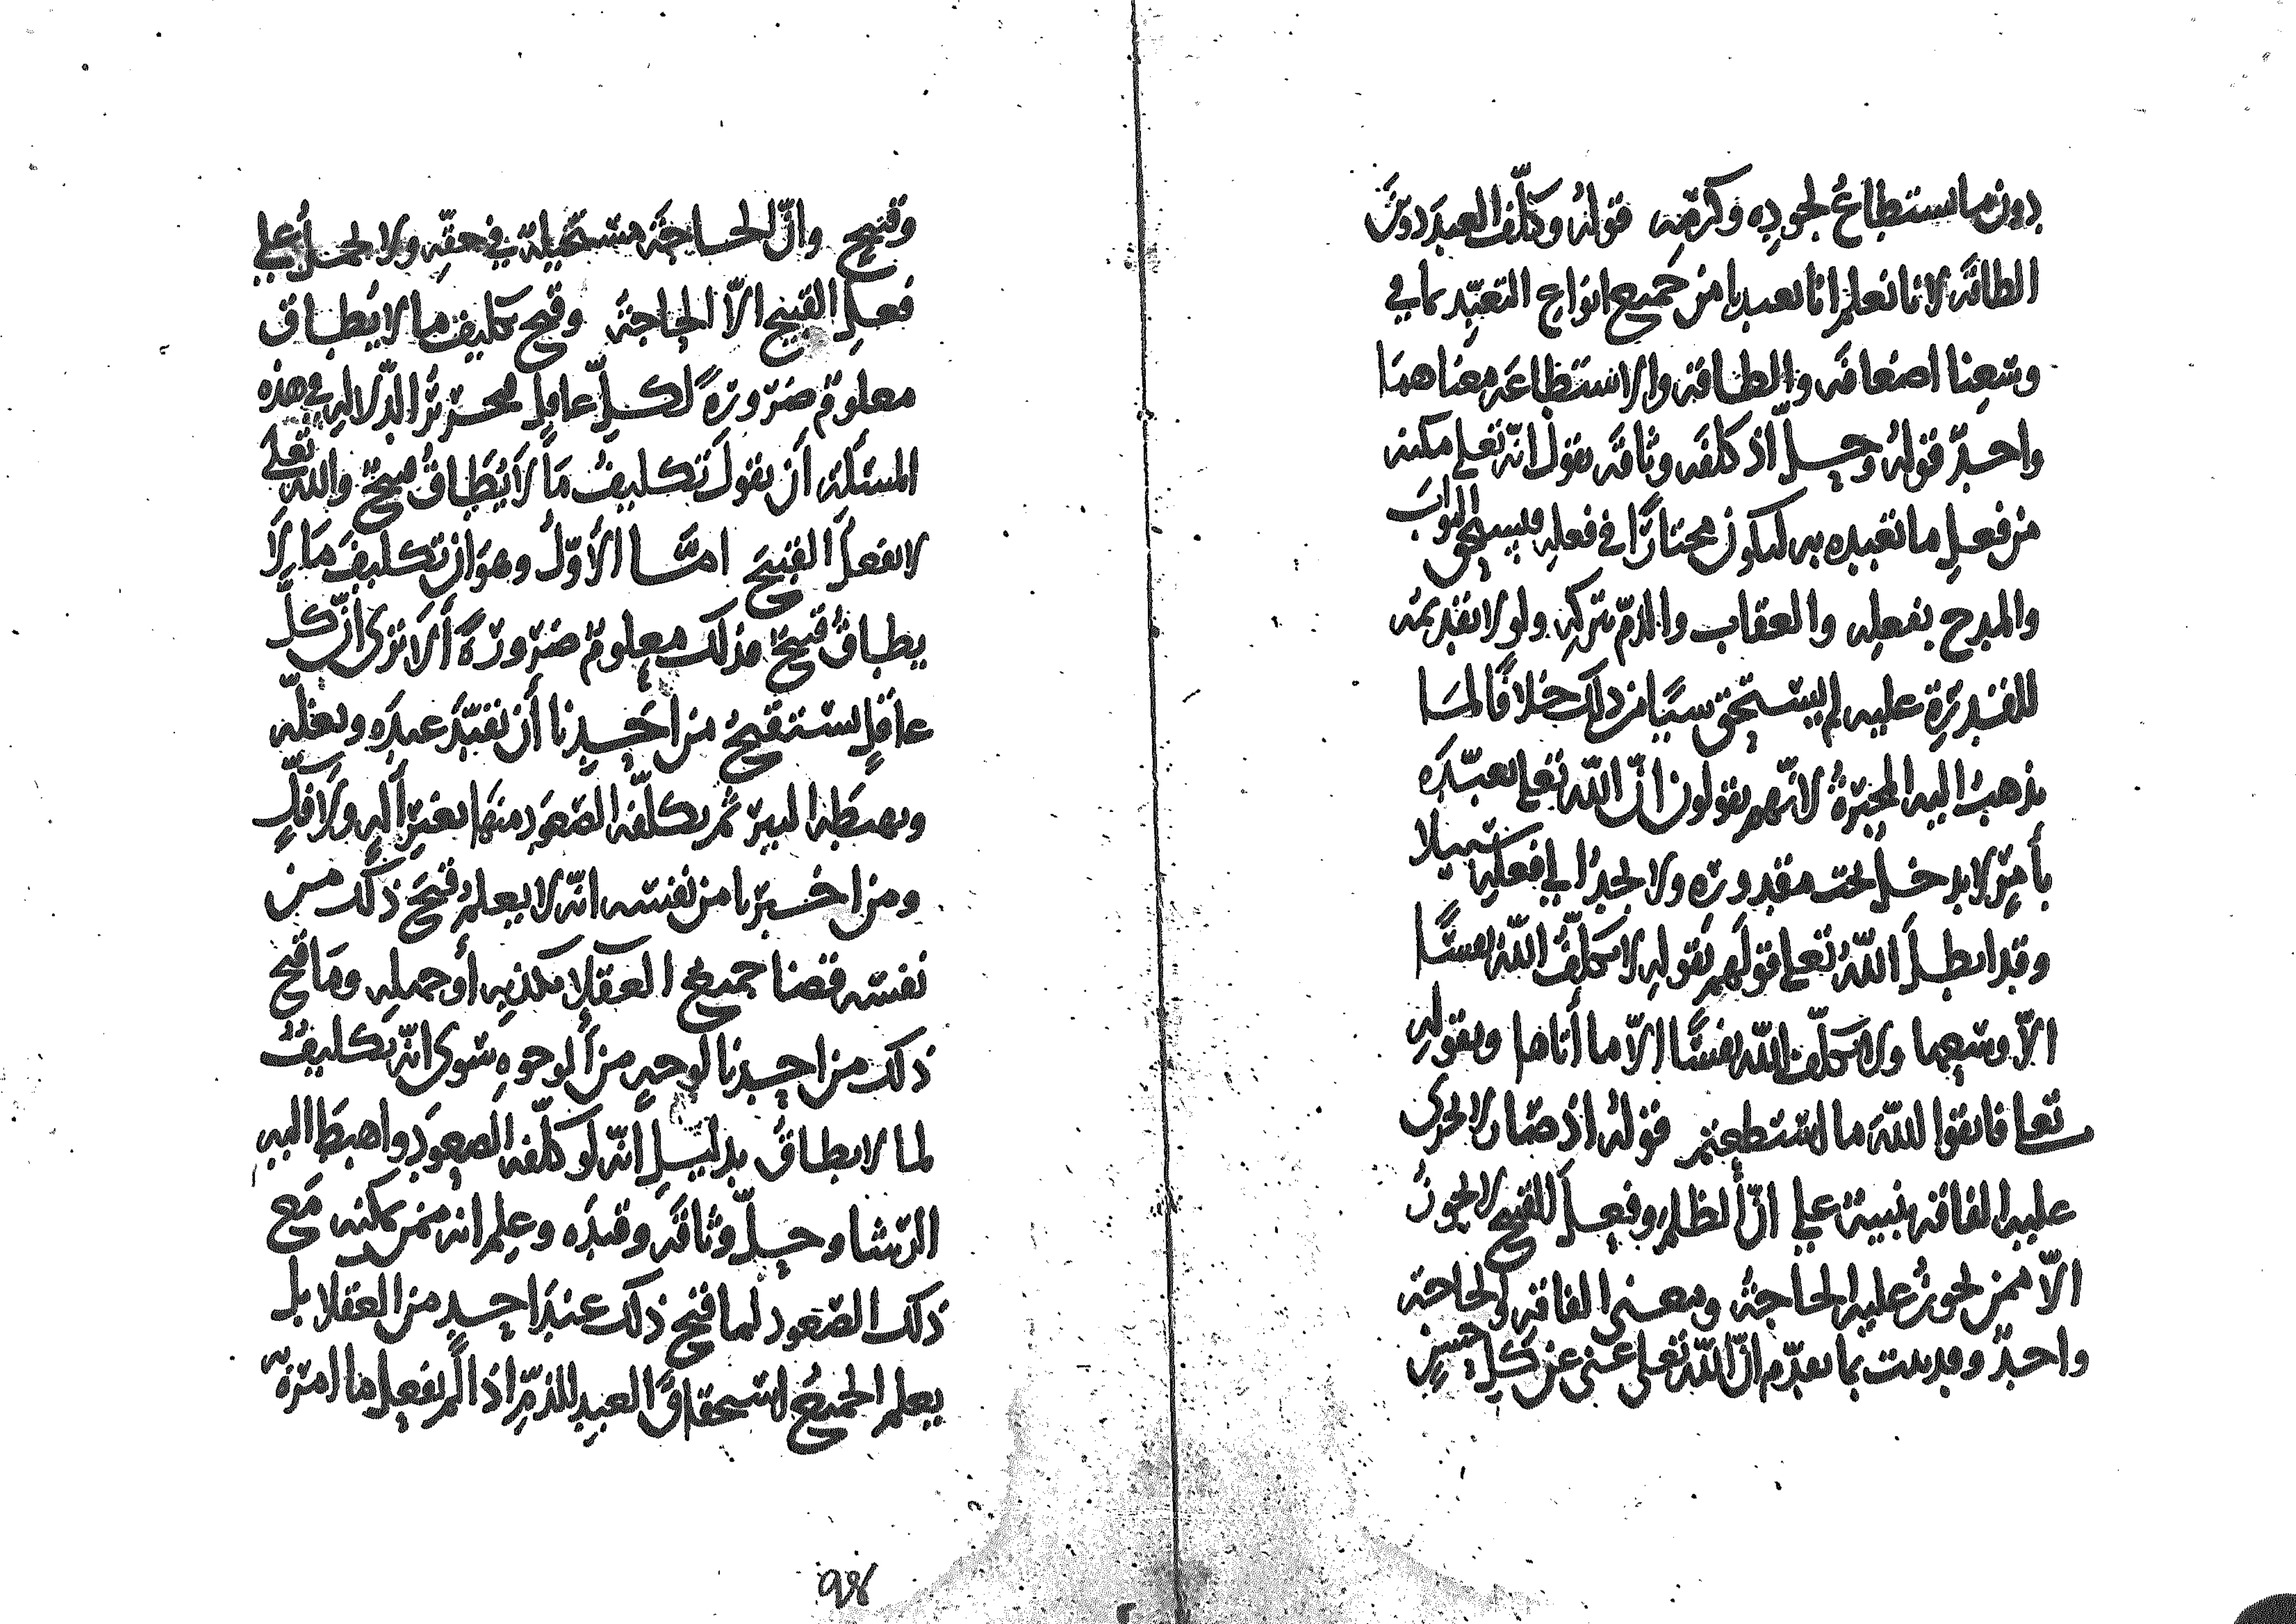 دون ما نستطاع لجوده وكرمه قوله وكلف العبد دون
الطاقة لانا نعلم انا نعبدنا من جميع انواع التعبد بما في
وسعنا اضعافه والطاقة والاستطاعة معناهما
واحد قوله وحل اذ كلفه وثاقه يقول انه تعلى مكنه
من فعل ما تعبده به ليكون مختارا في فعله فيستحق الثواب
والمدح بفعله والعقاب والذم بتركه ولولا تقديمه
للقدرة عليه لم يستحق شيا من ذلك خلافا لما
يذهب اليه المجبرة لانهم يقولون ان الله تعلى تعبده
بأمر لا يدخل تحت مقدوره ولا يجد الى فعله سبيلا
وقد ابطل الله تعلى قولهم بقوله لا يكلف الله نفسا
الا وسعها ولا يكلف الله نفسا الا ما أتاها وبقوله
تعلى فاتقوا الله ما استطعتم قوله اذ صار لا تجرى
عليه الفاقة تنبيه على ان الظلم وفعل القبيح لا يجوز
الا ممن تجوز عليه الحاجة ومعنى الفاقة والحاجة
واحد وقد ثبت بما تقدم ان الله تعلى غني عن كل حسن
وقبيح وان الحاجة مستحيلة في حقه ولا يحمل على
فعل القبيح الا الحاجة وقبح تكليف ما لا يطاق
معلوم ضرورة لكل عاقل تحرير الدلالة في هذه
المسئلة أن نقول تكليف ما لا يطاق قبيح والله تعلى
لا يفعل القبيح اما الأول وهو ان تكليف ما لا
يطاق قبيح فذلك معلوم ضرورة ألا ترى ان كل
عاقل يستقبح من احدنا أن يقيد عبده ويغله
ويهبطه البير ثم يكلفه الصعود منها بغير ألة ولا فك
ومن اخبرنا من نفسه انه لا يعلم قبح ذلك من
نفسه قضا جميع العقلا بكذبه أو جهله وما قبح
ذلك من احدنا لوجه من الوجوه سوى انه تكليف
لما لا يطاق بدليل أنه لو كلفه الصعود واهبط اليه
الرشا وحل وثاقه وقيده وعلم انه ممن يمكنه مع
ذلك الصعود لما قبح ذلك عند احد من العقلا بل
يعلم الجميع استحقاق العبد للذم اذا لم يفعل ما امره